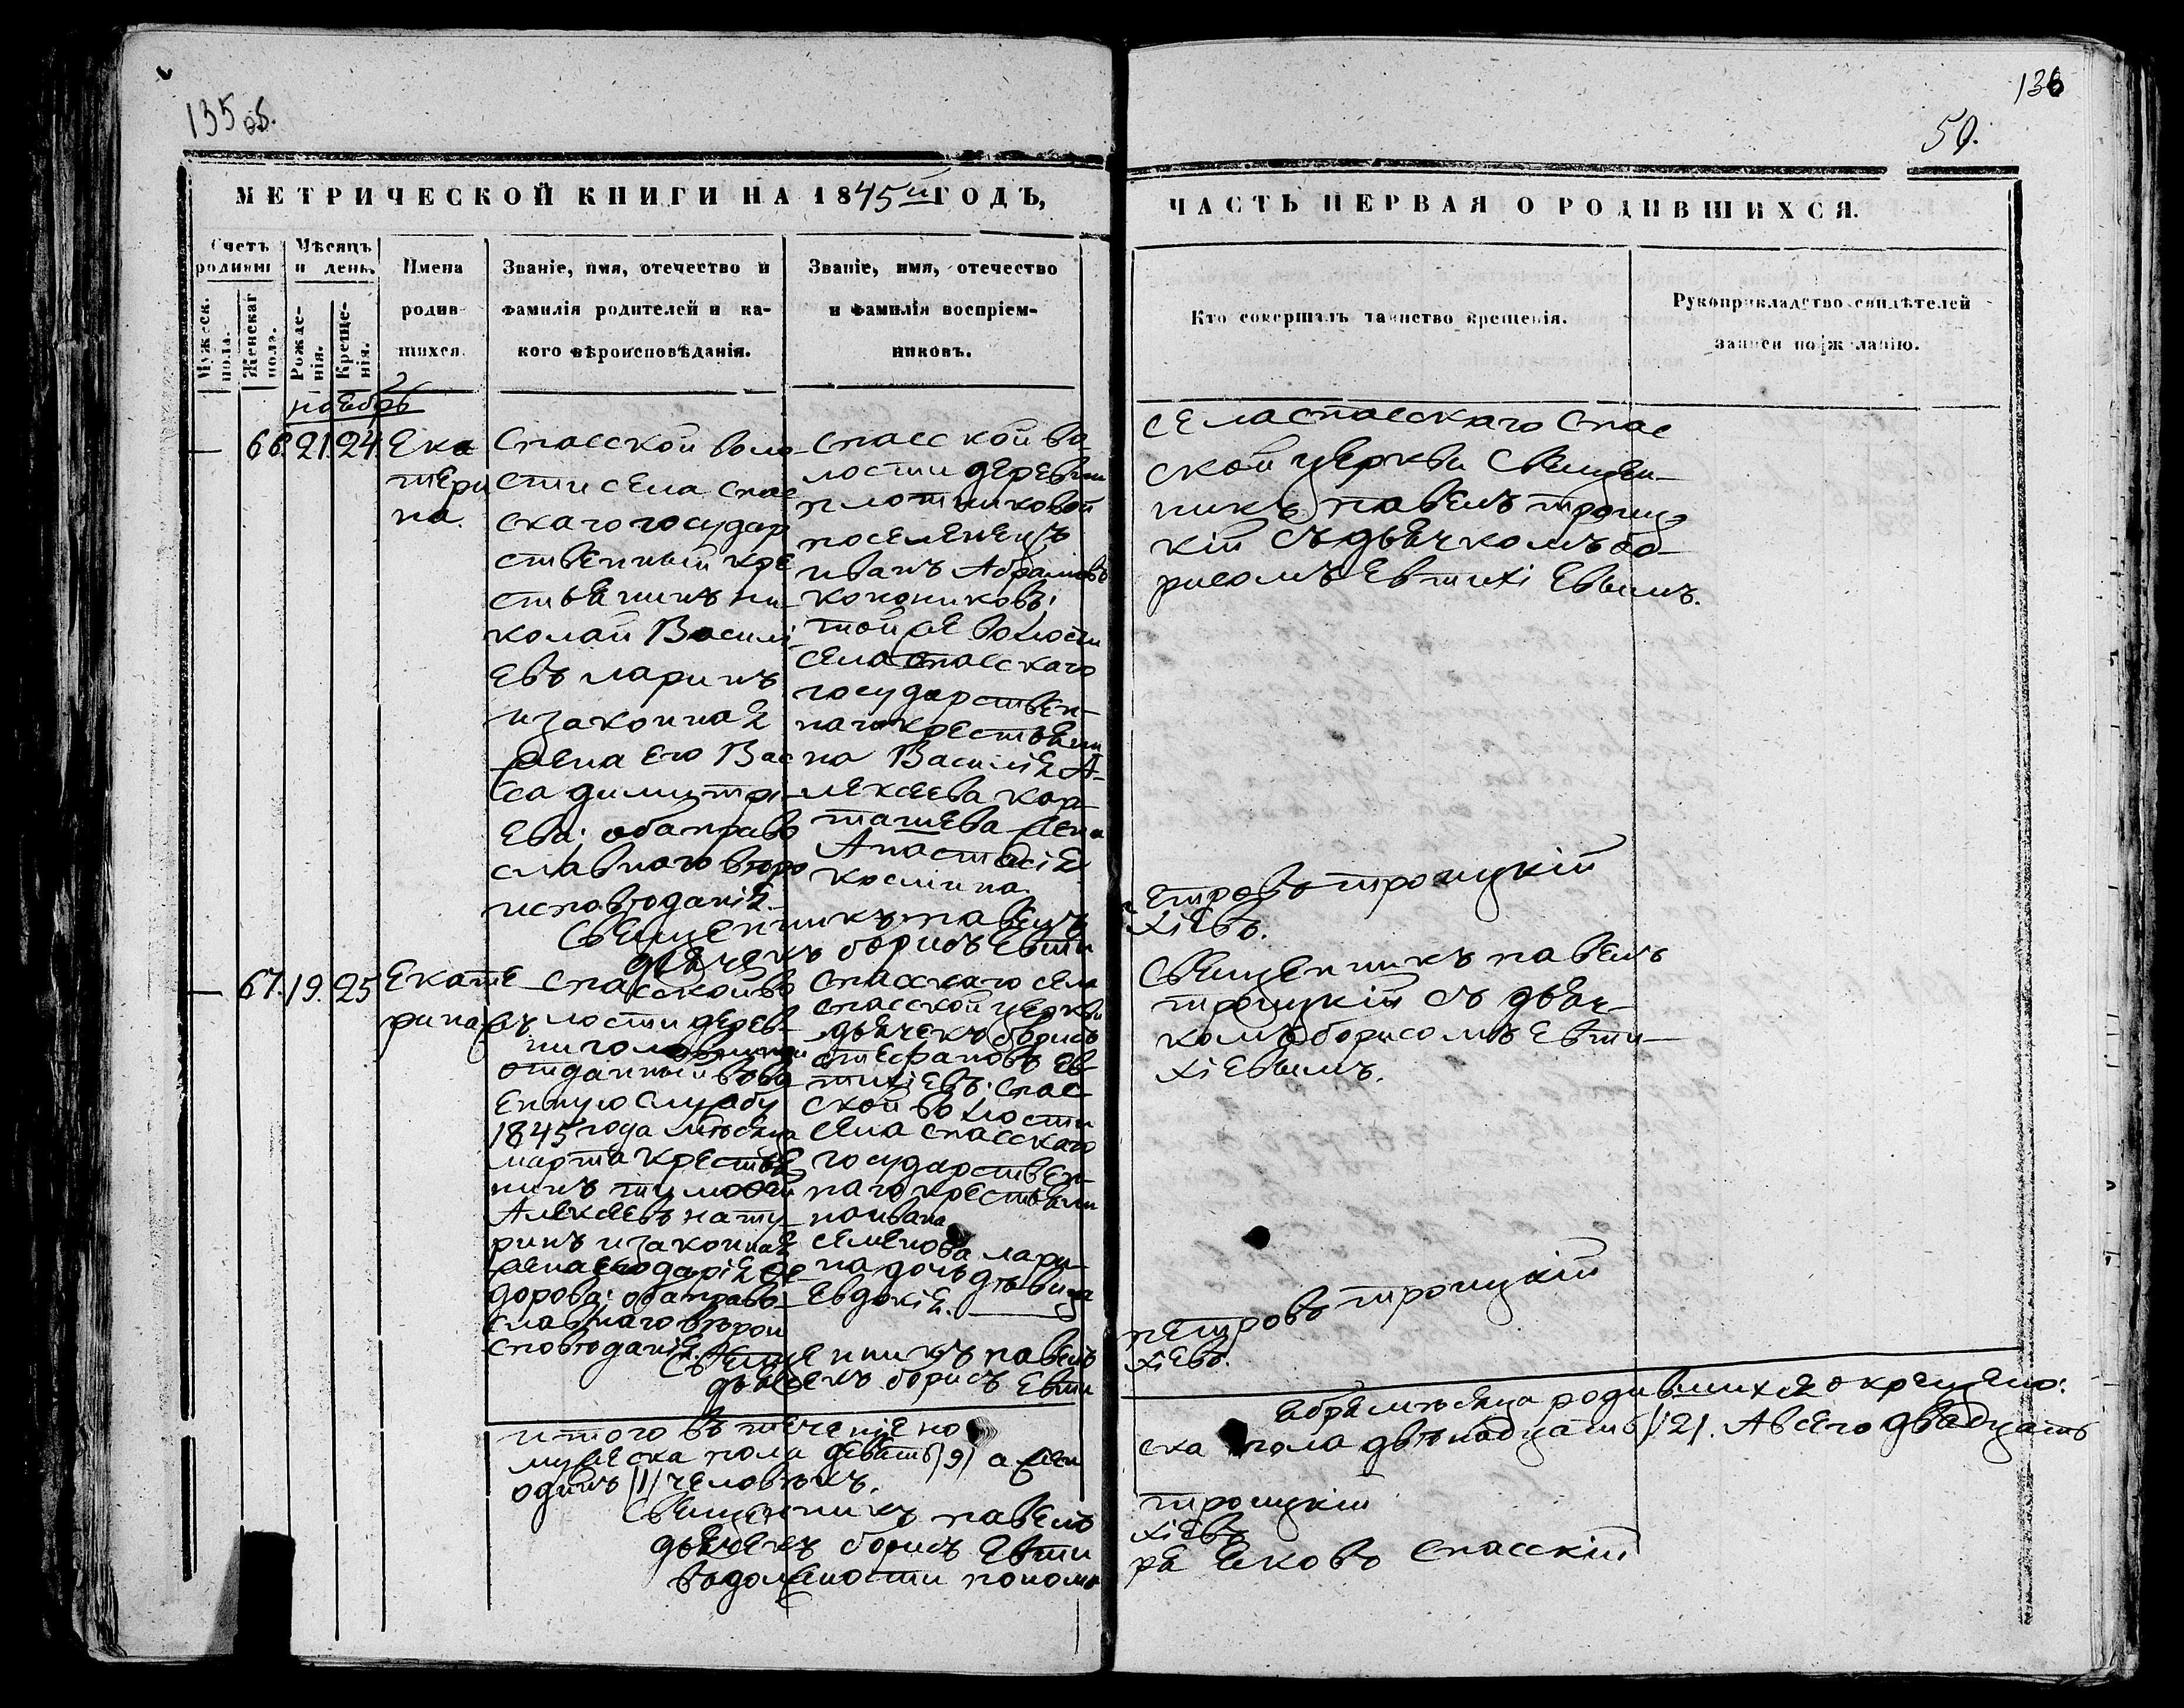 135 об.
136
59.
МЕТРИЧЕСКОЙ КНИГИ НА 1845й ГОДЪ,
ЧАСТЬ ПЕРВАЯ О РОДИВШИХСЯ.
Счетъ родивш
Мужеск. пола.
Женскаг пола.
Мѣсяцъ и день.
Рожде-нія.
Креще-нія.
Имена
родив-
шихся.
Званіе, имя, отечество и
фамилія родителей и ка-
кого вѣроисповѣданія.
Званіе, имя, отечество
и фамилія воспріем-
никовъ.
Кто совершалъ таинство крещенія.
Рукоприкладство свидѣтелей
записи по желанію.
ноебрь
— 66. 21. 24
Ека
тери
на.
Спасской воло
сти села спас
скаго государ
ственный кре
стьянинъ ни-
колай Василі
евъ ларинъ
и законная
жена его Вас
са димитрі-
ева; оба право
славнаго вѣро
исповѣданія.
спасской во
лости деревни
плотниковой
поселенецъ
иванъ Абрамовъ
кокониковъ;
той же волости
села спасскаго
государствен-
наго крестьяни
на Василія А-
лексеева кар-
ташева жена
Анастасія
космина.
села спасскаго спас
ской церкви священ-
никъ павелъ троиц-
кій съ дьячкомъ бо-
рисомъ Евтихіевымъ.
Священникъ павелъ
етровъ троицкій
дьячекъ борисъ Евти
хіевъ.
— 67. 19. 25
Екате
рина
спасской во
лости дерев-
ни
отданный в вое
енную службу
1845 года мѣсяца
марта крестья
нинъ тимофей
Алексеевъ нату-
ринъ и законная
жена его дарія Фе
дорова; оба право-
славнаго вѣрои
сповѣданія.
спасскаго села
спасской церкви
дьячекъ борисъ
стефановъ ев
тихіевъ; спас
ской волости
села спасскаго
государствен-
наго крестьяни
на ивана
семенова лари-
на дочь дѣвица
Евдокія.
Священникъ павелъ
троицкій съ дьяч-
комъ борисомъ Евти-
хіевымъ.
Священникъ павелъ
петровъ троицкій
дьячекъ борисъ Евти
хіевъ.
итого въ теченіе но
ебря мѣсяца родившихся окрещено:
мужеска пола девять /9/ а жен
ска пола двѣнадцать /12/. А всего двадцать
одинъ /1/ человѣкъ.
Священникъ павелъ
троицкій
дьячекъ борисъ Евти
хіевъ
в должности понома
ря Яковъ спасскій